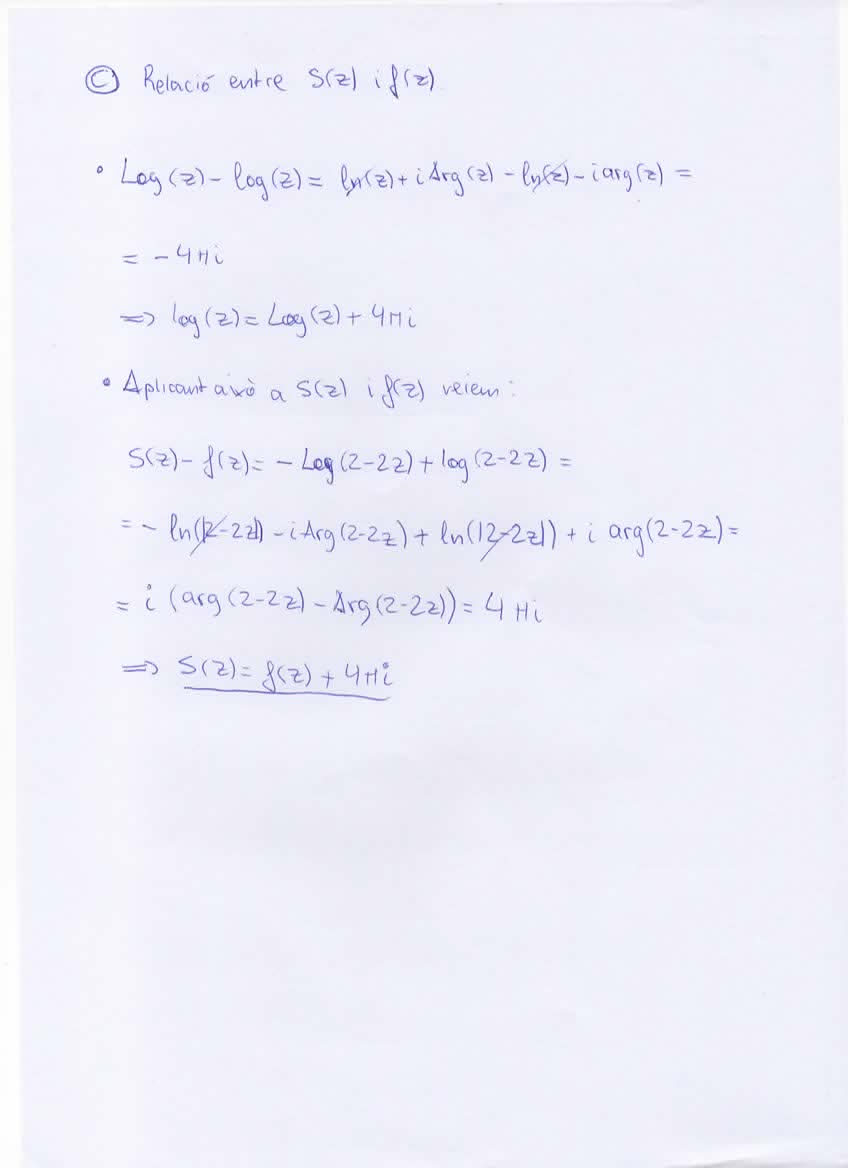 Ⓒ Relació entre S(z) i f(z)
• Log(z) - log(z) = ln(z) + i Arg(z) - ln(z) - i arg(z) =
= - 4πi
=> log(z) = Log(z) + 4πi
• Aplicant això a S(z) i f(z) veiem:
S(z) - f(z) = - Log(2-2z) + log(2-2z) =
= - ln(|2-2z|) - i Arg(2-2z) + ln(|2-2z|) + i arg(2-2z) =
= i (arg(2-2z) - Arg(2-2z)) = 4πi
=> S(z) = f(z) + 4πi